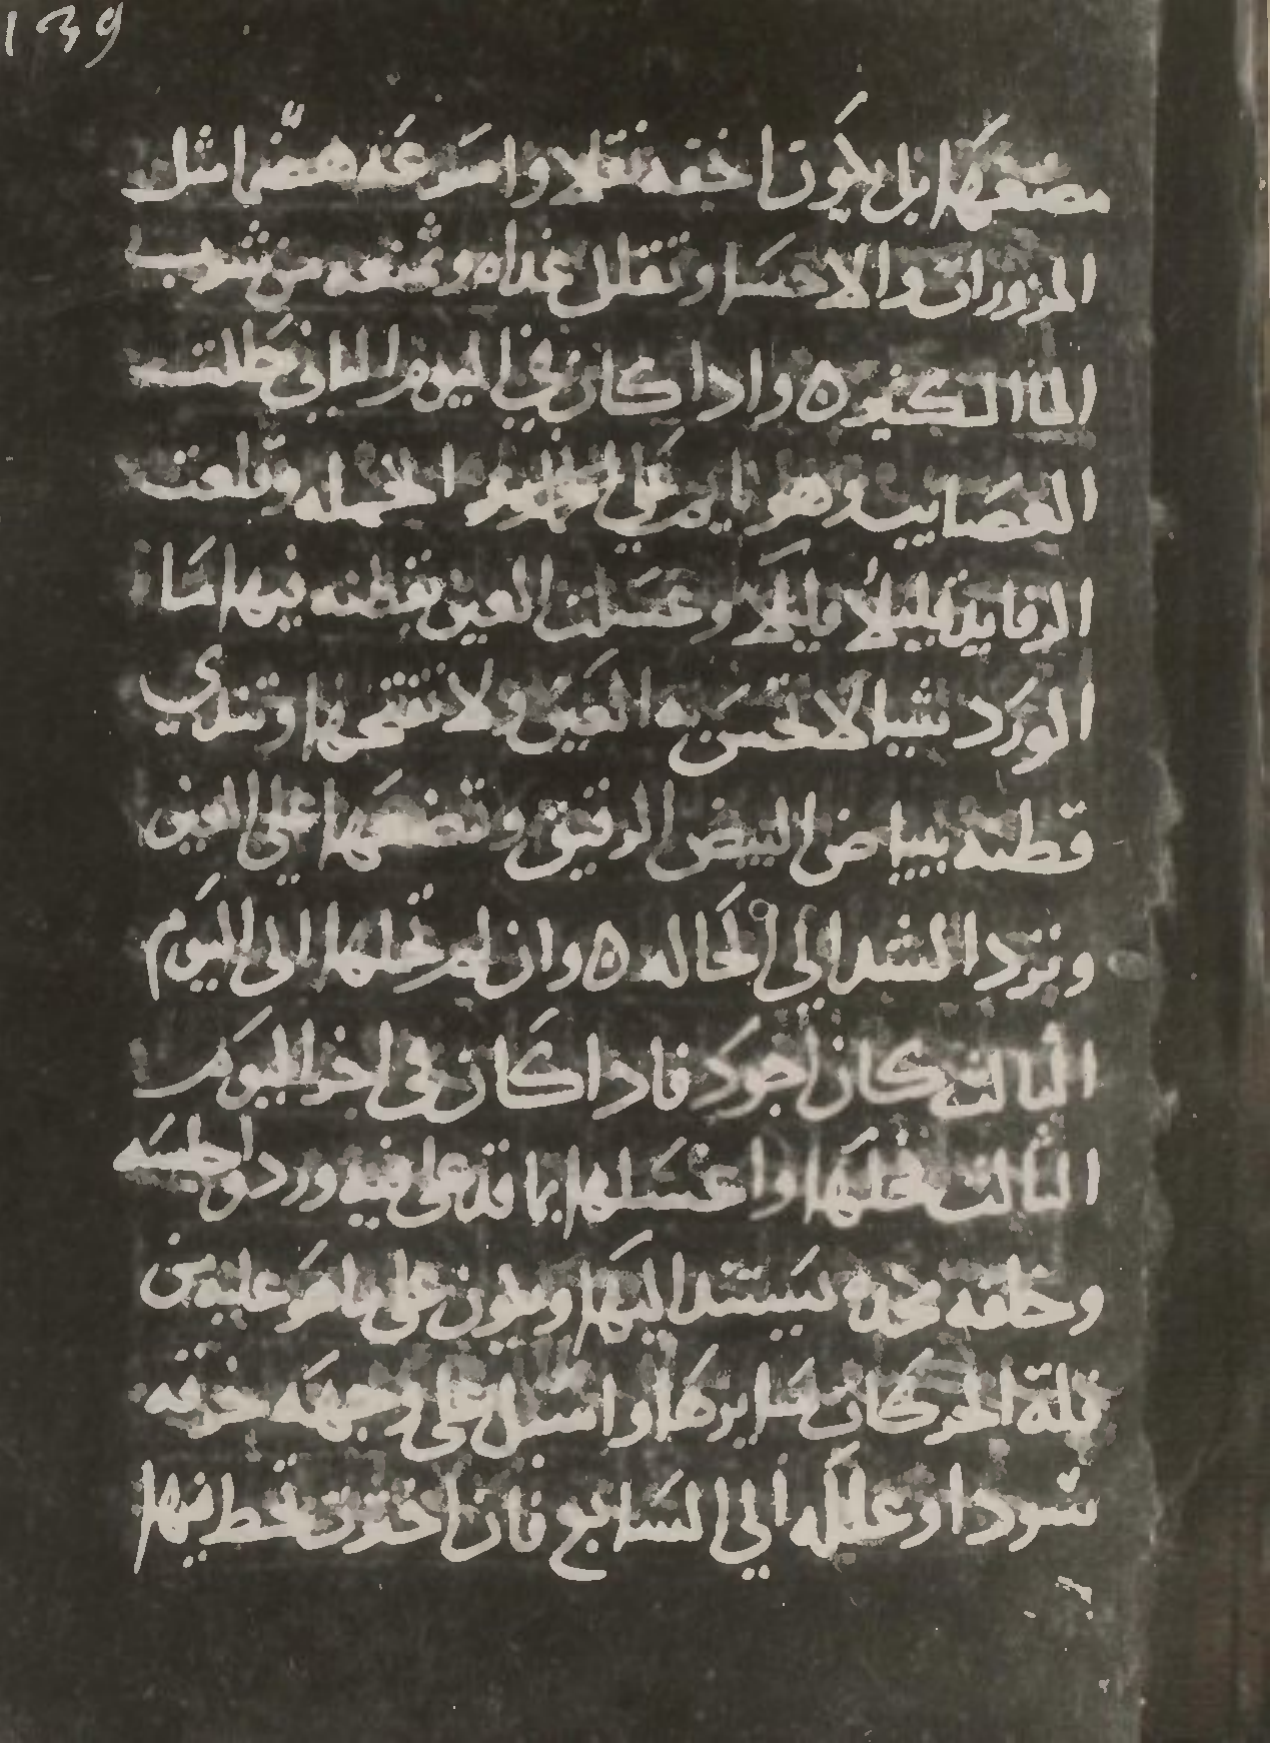 139
مضغها بل يكون اخفه نقلا واسرعه هضما مثل
المزورات والاحسا وتقلل غداه وتمنعه من شرب
الما الكثير ٥ واذا كان في اليوم الثاني حللت
العصايب وهو نايم على ظهره الحمله وقلعت
الرفايد قليلا قليلا وغسلت العين بقطنه فيها ما
الورد شيا لا تحس به العين ولا تفتحها وتندي
قطنه ببياض البيض الرقيق وتضعها على العين
وترد الشد الي الحاله ٥ وان لم تحلها الى اليوم
الثالث كان اجود فاذا كان في اخر اليوم
الثالث فحلها واغسلها بما قد غلي فيه ورد واجلسه
وخلفه مخده يستند اليها ويكون على ما هو عليه من
قلة الحركات سايرها واسبل على وجهه خرقه
سودا وعلله الي السابع فان احترت تحط فيها